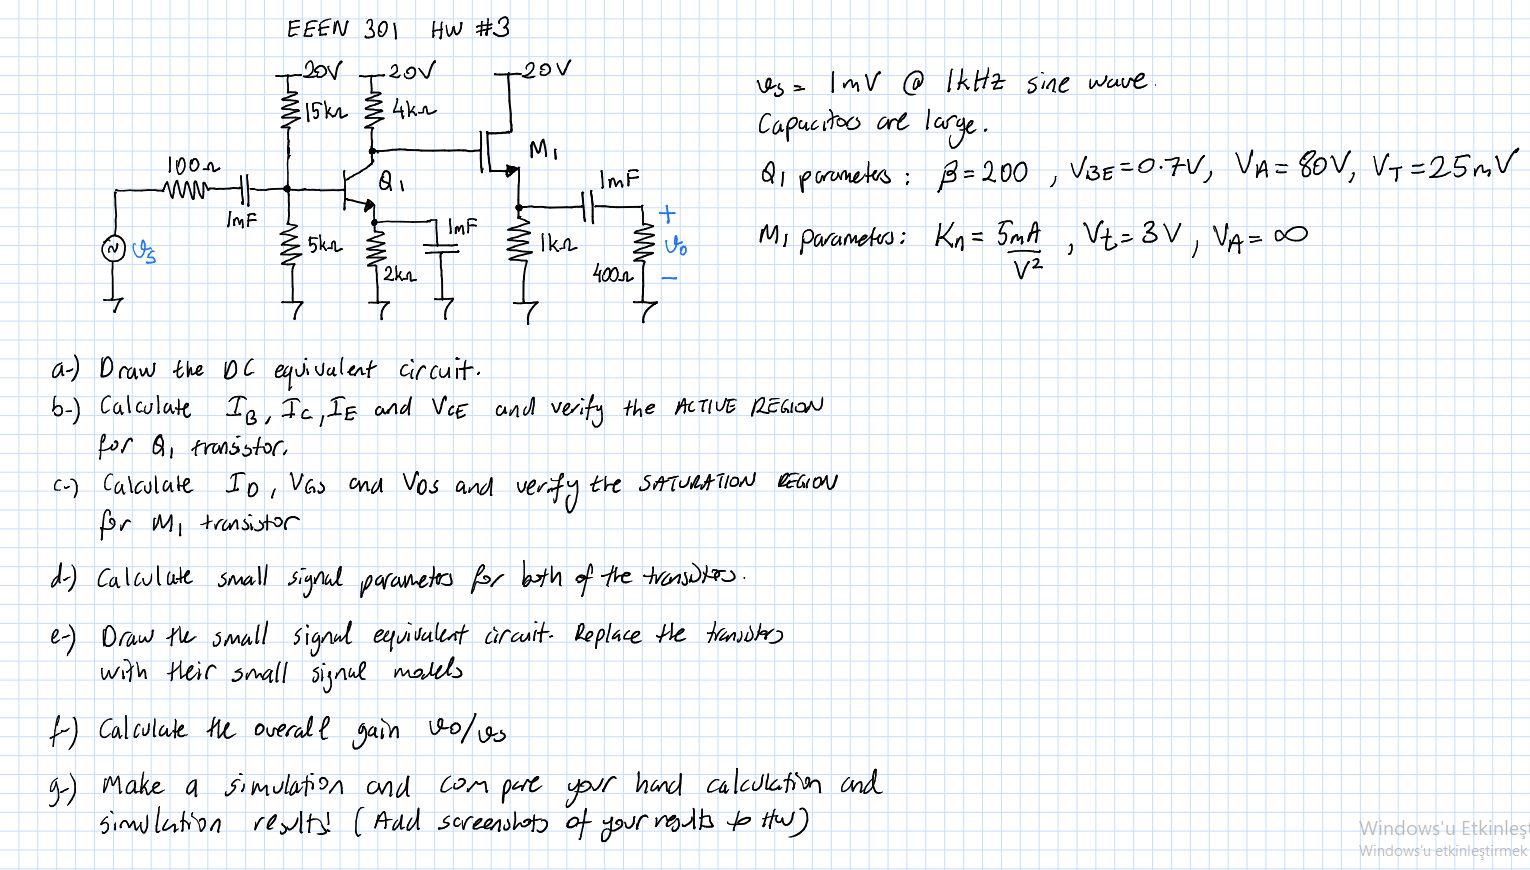 EEEN 301 HW #3
20V 20V 20V
15kΩ 4kΩ
M1
100Ω
Q1
1mF
1mF
1mF
+
vs
5kΩ
2kΩ
1kΩ
400Ω
vo
-
vs = 1mV @ 1kHz sine wave.
Capacitos are large.
Q1 parameters : β = 200 , VBE = 0.7V, VA = 80V, VT = 25mV
M1 parameters: Kn = 5mA/V² , Vt = 3V , VA = ∞
a-) Draw the DC equivalent circuit.
b-) Calculate IB, IC, IE and VCE and verify the ACTIVE REGION
for Q1 transistor.
c-) Calculate ID, VGS and VDS and verify the SATURATION REGION
for M1 transistor
d-) Calculate small signal parameters for both of the transistors.
e-) Draw the small signal equivalent circuit. Replace the transistors
with their small signal models
f-) Calculate the overall gain vo/vs
g-) Make a simulation and compare your hand calculation and
simulation results! ( Add screenshots of your results to HW)
Windows'u Etkinleşt
Windows'u etkinleştirmek